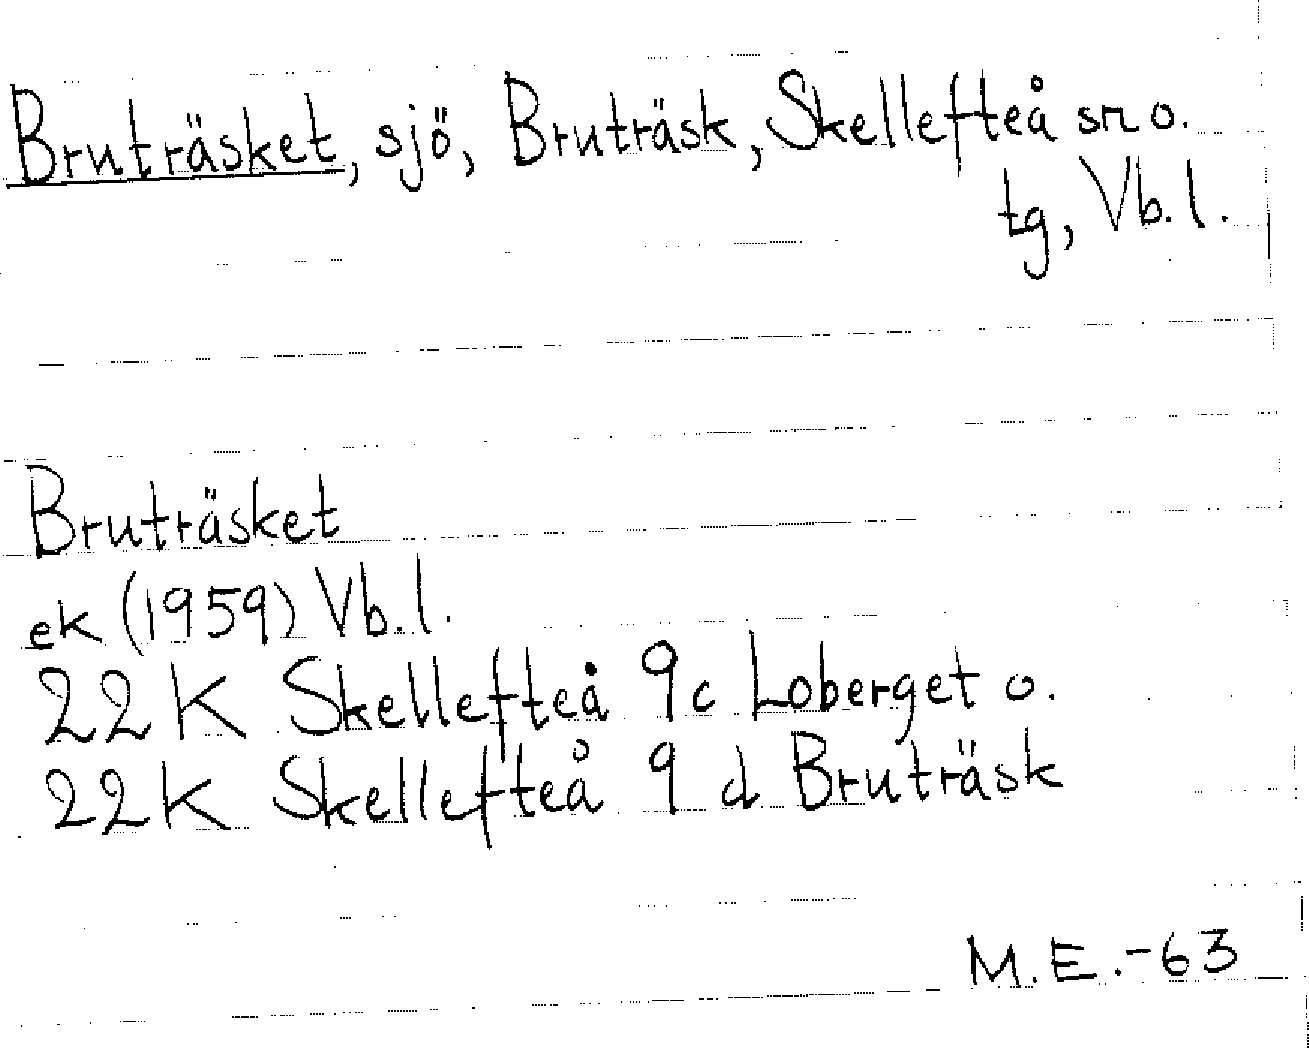 Bruträsket, sjö, Bruträsk, Skellefteå sn o.
tg, Vb. l.
Bruträsket
ek (1959) Vb. l.
22 K Skellefteå 9c Loberget o.
22K Skellefteå 9 d Bruträsk
M.E.-63